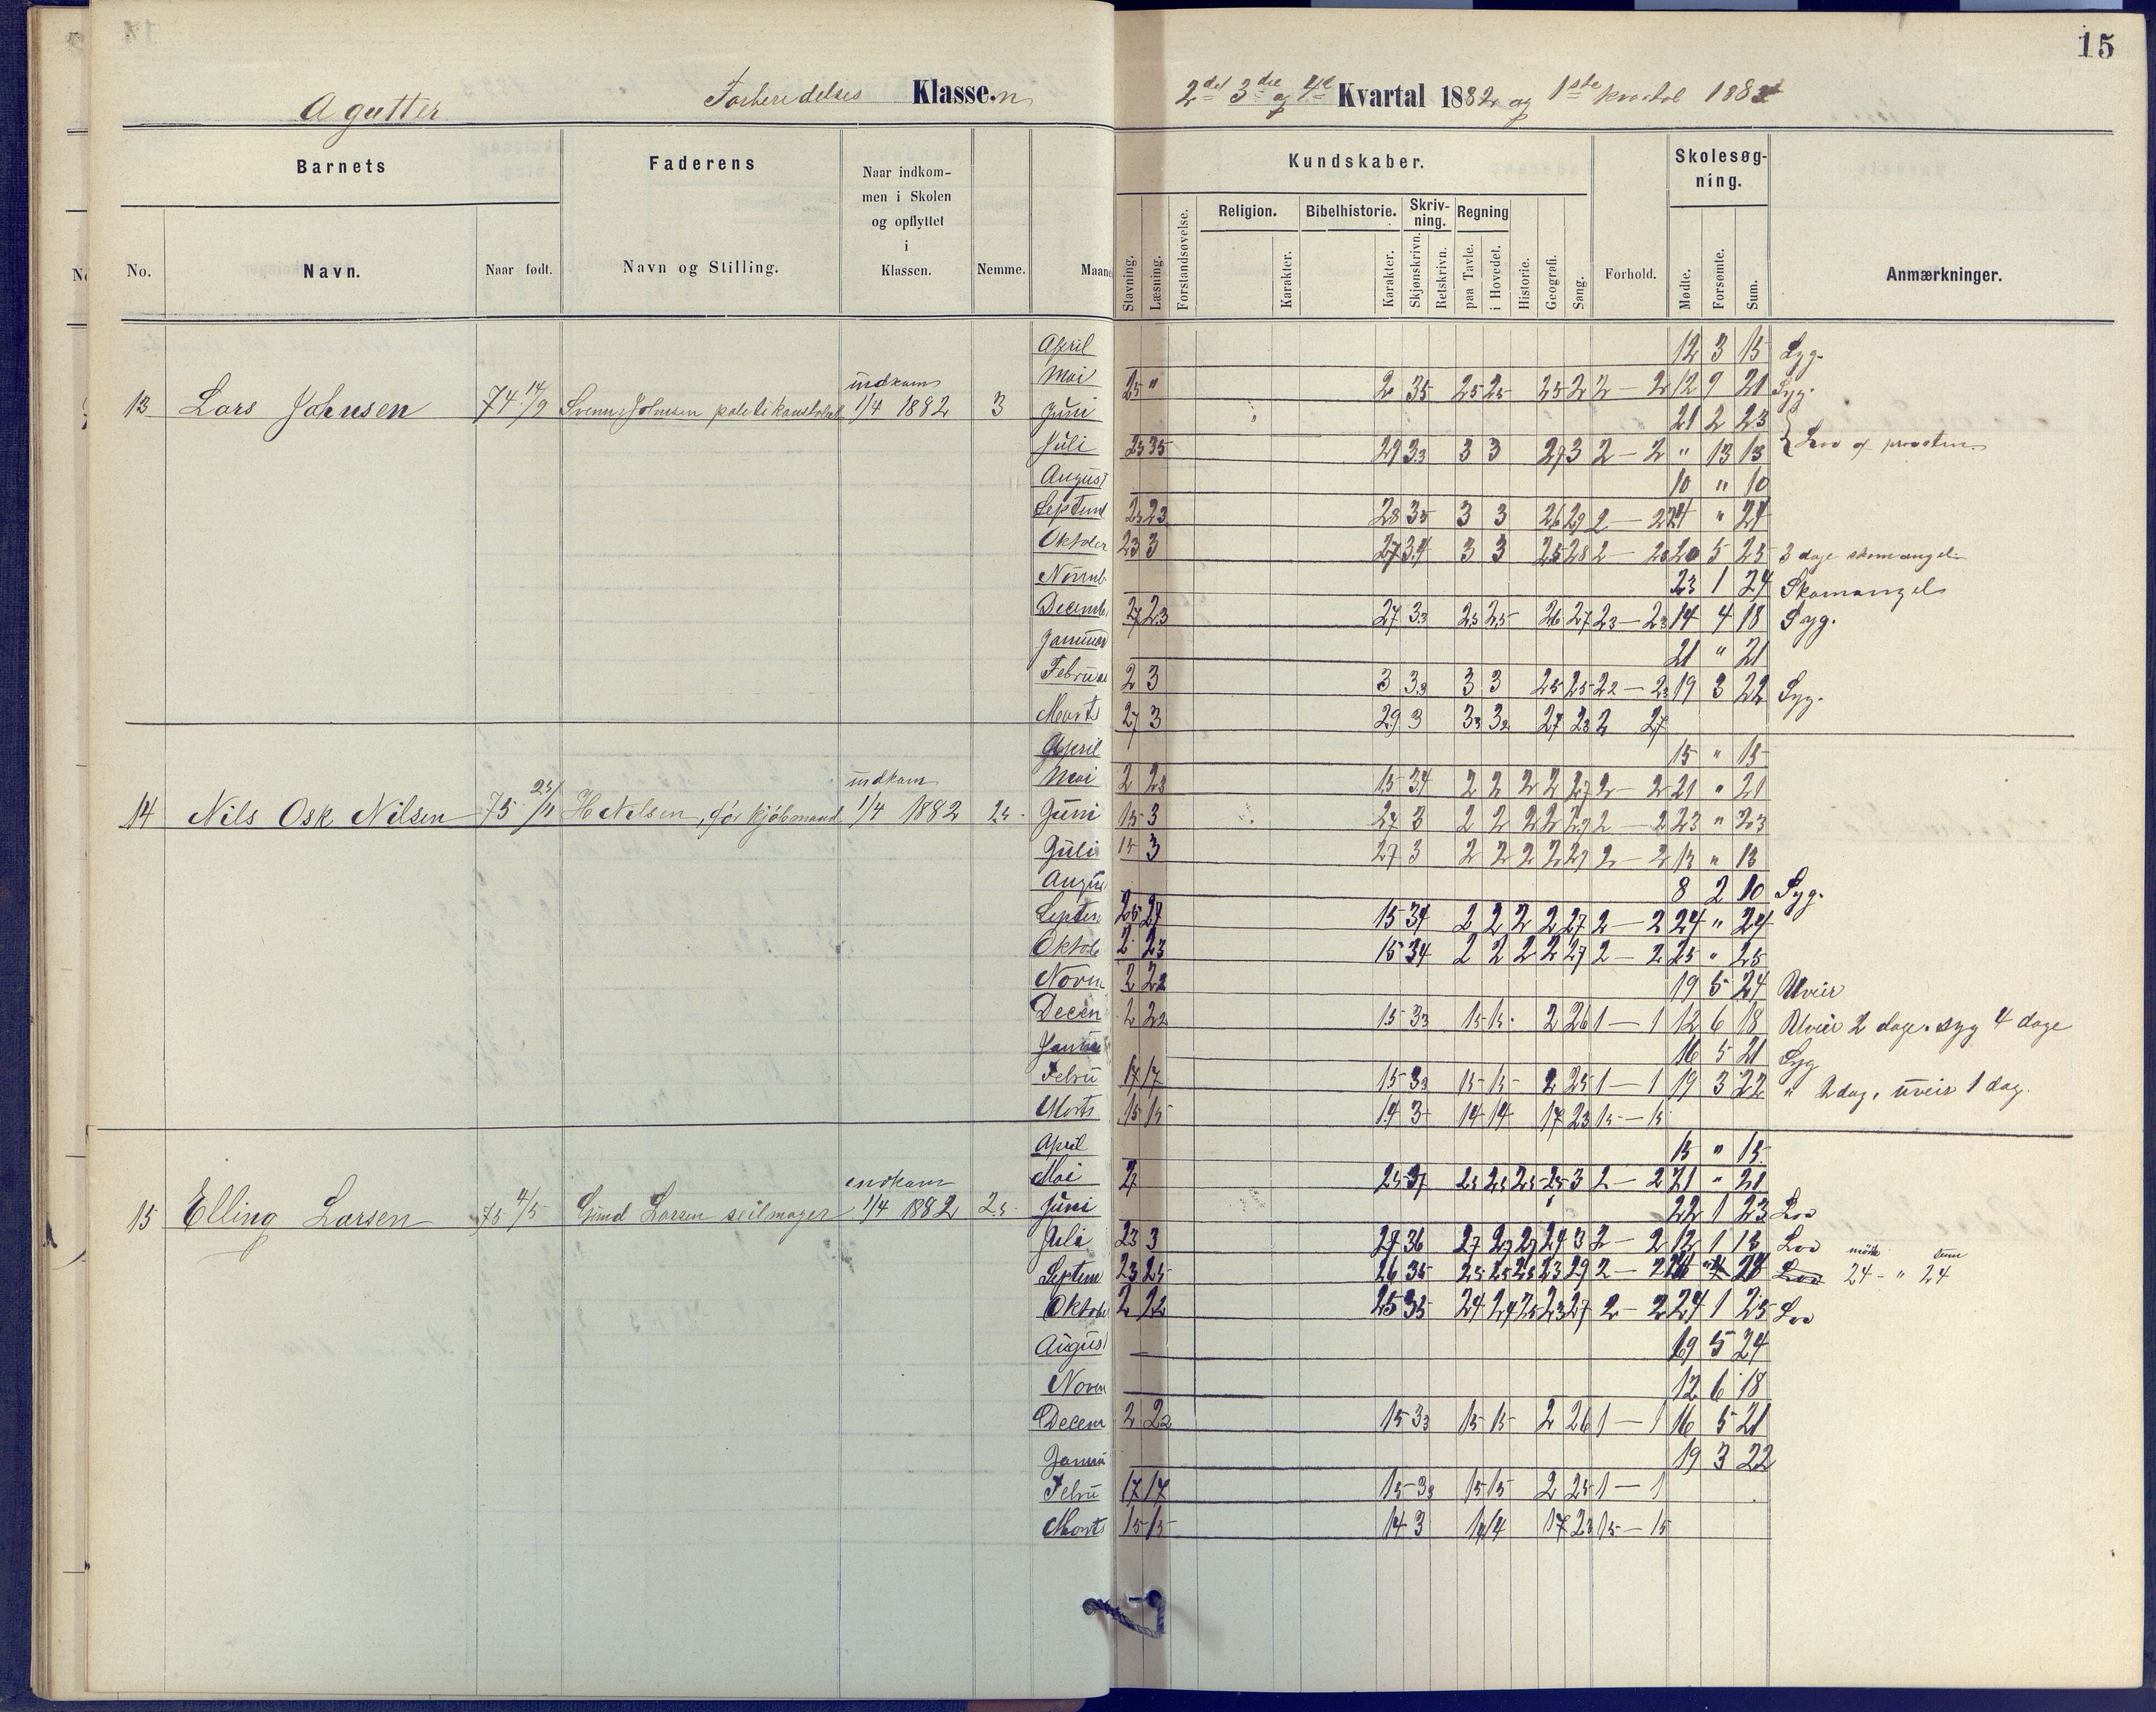 15
A gutter Forberedelses Klasse.n 2det 3die og 4de Kvartal 1882 og 1ste kvartal 1883
Barnets Faderens Naar indkommen i Skolen og opflyttet i Klassen. Nemme. Maane
No. Navn. Naar født. Navn og Stilling.
Kundskaber. Skolesøgning. Anmærkninger.
Stavning. Læsning. Forstandsøvelse. Religion. Karakter. Bibelhistorie. Karakter. Skrivning. Skjønskrivn. Retskrivn. Regning paa Tavle. i Hovedet. Historie. Geografi. Sang. Forhold. Mødte. Forsømte. Sum.
April 12 3 15 Syg.
indkom
Mai 25 " 2 35 25 25 25 22 2 — 2 12 9 21 Syg.
13 Lars Johnsen 74 14/9 Johnsen politikonstabel 1/4 1882 3 Juni 21 2 23
Juli 23 35 29 33 3 3 27 3 2 — 2 " 13 13
August 10 " 10
Septemb 23 23 28 35 3 3 26 29 2 — 2 24 " 24
Oktober 23 3 27 34 3 3 25 28 2 — 23 20 5 25 3 dage skomangel
Novemb 23 1 24 Skomangel
Decemb 27 23 27 33 25 25 26 27 23 — 23 14 4 18 Syg.
Januar 21 " 21
Februar 2 3 3 33 3 3 25 25 22 — 23 19 3 22 Syg.
Marts 27 3 29 3 33 32 27 23 2 27
April 15 " 15
indkom
Mai 2 23 15 34 2 2 2 2 27 2 — 2 21 " 21
14 Nils Osk Nilsen 75 23/11 H Nilsen, før kjøbmand 1/4 1882 25 Juni 15 3 27 3 2 2 2 2 27 2 — 2 23 " 23
Juli 15 3 27 3 2 2 2 2 27 2 — 2 13 " 13
August 8 2 10 Syg.
Septem 25 27 15 34 2 2 2 2 27 2 — 2 24 " 24
Oktob 2 23 15 34 2 2 2 2 27 2 — 2 25 " 25
Novm 2 22 19 5 24 Uveir
Decem 2 22 15 33 15 15 2 26 1 — 1 12 6 18 Uveir 2 dage. syg 4 dage
Januar 16 5 21 Syg
Febru 17 17 15 33 15 15 2 25 1 — 1 19 3 22 " 2 dag, uveir 1 dag.
Marts 15 15 14 3 14 14 17 23 15 — 15
April 15 " 15
indkom
Mai 2 25 37 25 25 25 25 3 2 — 2 21 " 21
15 Elling Larsen 75 4/5 Gund Larsen seilmager 1/4 1882 25 Juni 22 1 23 Lov
Juli 23 3 27 36 27 27 27 24 3 2 — 2 12 1 13 Lov
Septem 23 25 26 35 25 25 25 23 29 2 — 2 Lov mødte 24 - " sum 24
Oktober 2 22 25 35 24 24 25 23 27 2 — 2 24 1 25 Lov
August — 19 5 24
Novem 12 6 18
Decem 2 22 15 33 15 15 2 26 1 — 1 16 5 21
Janua 19 3 22
Febru 17 17 15 33 15 15 2 25 1 — 1
Marts 15 15 14 3 14 14 17 23 15 — 15